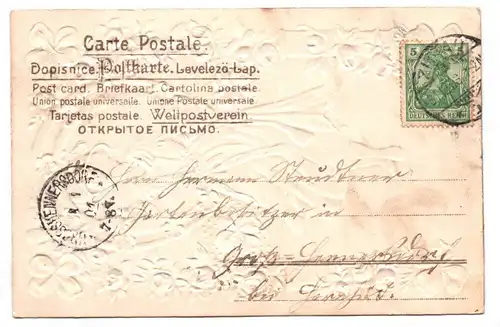 Carte Postale.
Dopisnice. Postkarte. Levelező-Lap.
Post card. Briefkaart. Cartolina postale.
Union postale universelle. Unione Postale universale
Tarjetas postale. Weltpostverein
ОТКРЫТОЕ ПИСЬМО.
5
DEUTSCHES REICH
Herrn Hermann
Gartenbesitzer in
Groß-Hennersdorf
bei Herrnhut.
7-8